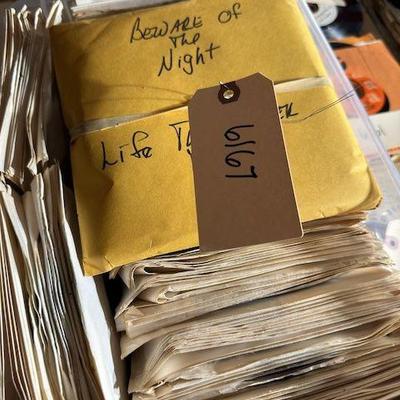 Beware of
The
Night
Life
667